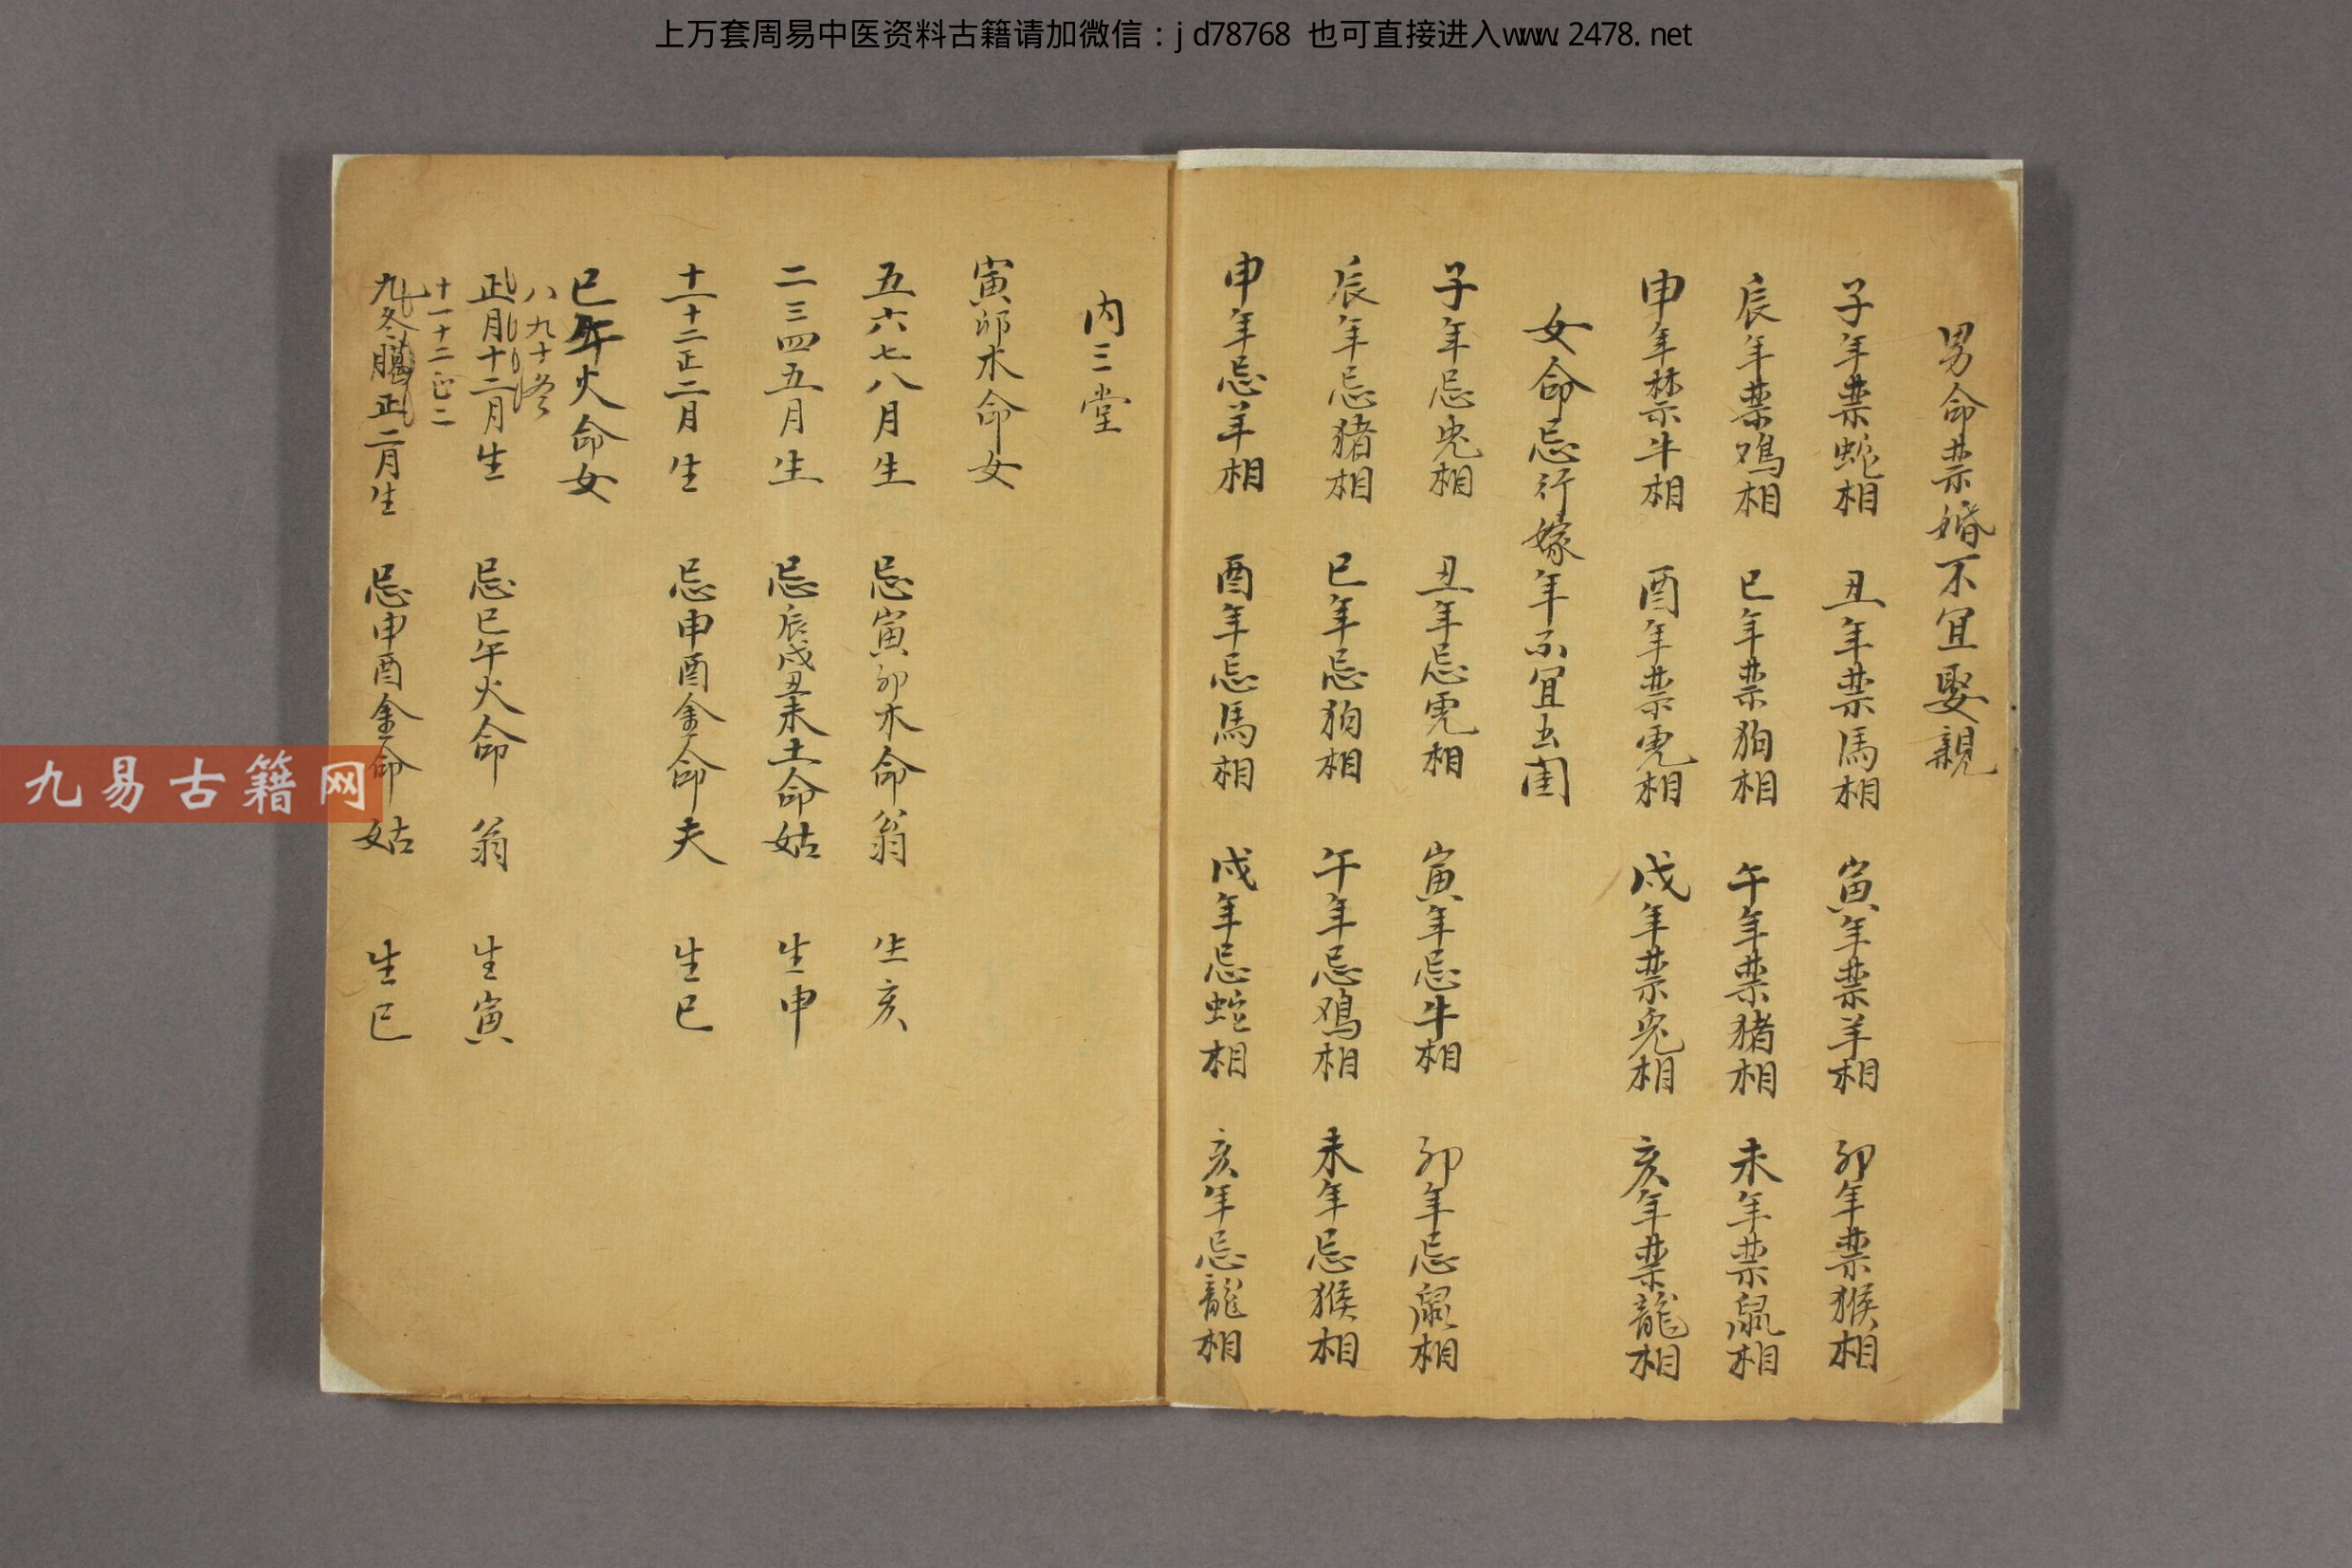 上万套周易中医资料古籍请加微信：jd78768 也可直接进入www.2478.net
男命禁婚不宜娶親
子年禁蛇相 丑年禁馬相 寅年禁羊相 卯年禁猴相
辰年禁鸡相 巳年禁狗相 午年禁猪相 未年禁鼠相
申年禁牛相 酉年禁虎相 戌年禁兔相 亥年禁龍相
女命忌行嫁年不宜出閨
子年忌兔相 丑年忌虎相 寅年忌牛相 卯年忌鼠相
辰年忌猪相 巳年忌狗相 午年忌鸡相 未年忌猴相
申年忌羊相 酉年忌馬相 戌年忌蛇相 亥年忌龍相
内三堂
寅卯木命女
五六七八月生 忌寅卯木命翁 生亥
二三四五月生 忌辰戌丑未土命姑 生申
十一十二正二月生 忌申酉金命夫 生巳
巳午火命女
八九十冬
正月十二月生 忌巳午火命翁 生寅
十一十二正二
九冬臘正二月生 忌申酉金命姑 生巳
九易古籍网